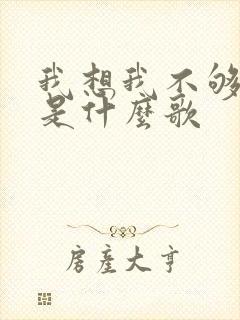 我想我不够
是什麼歌
房產大亨